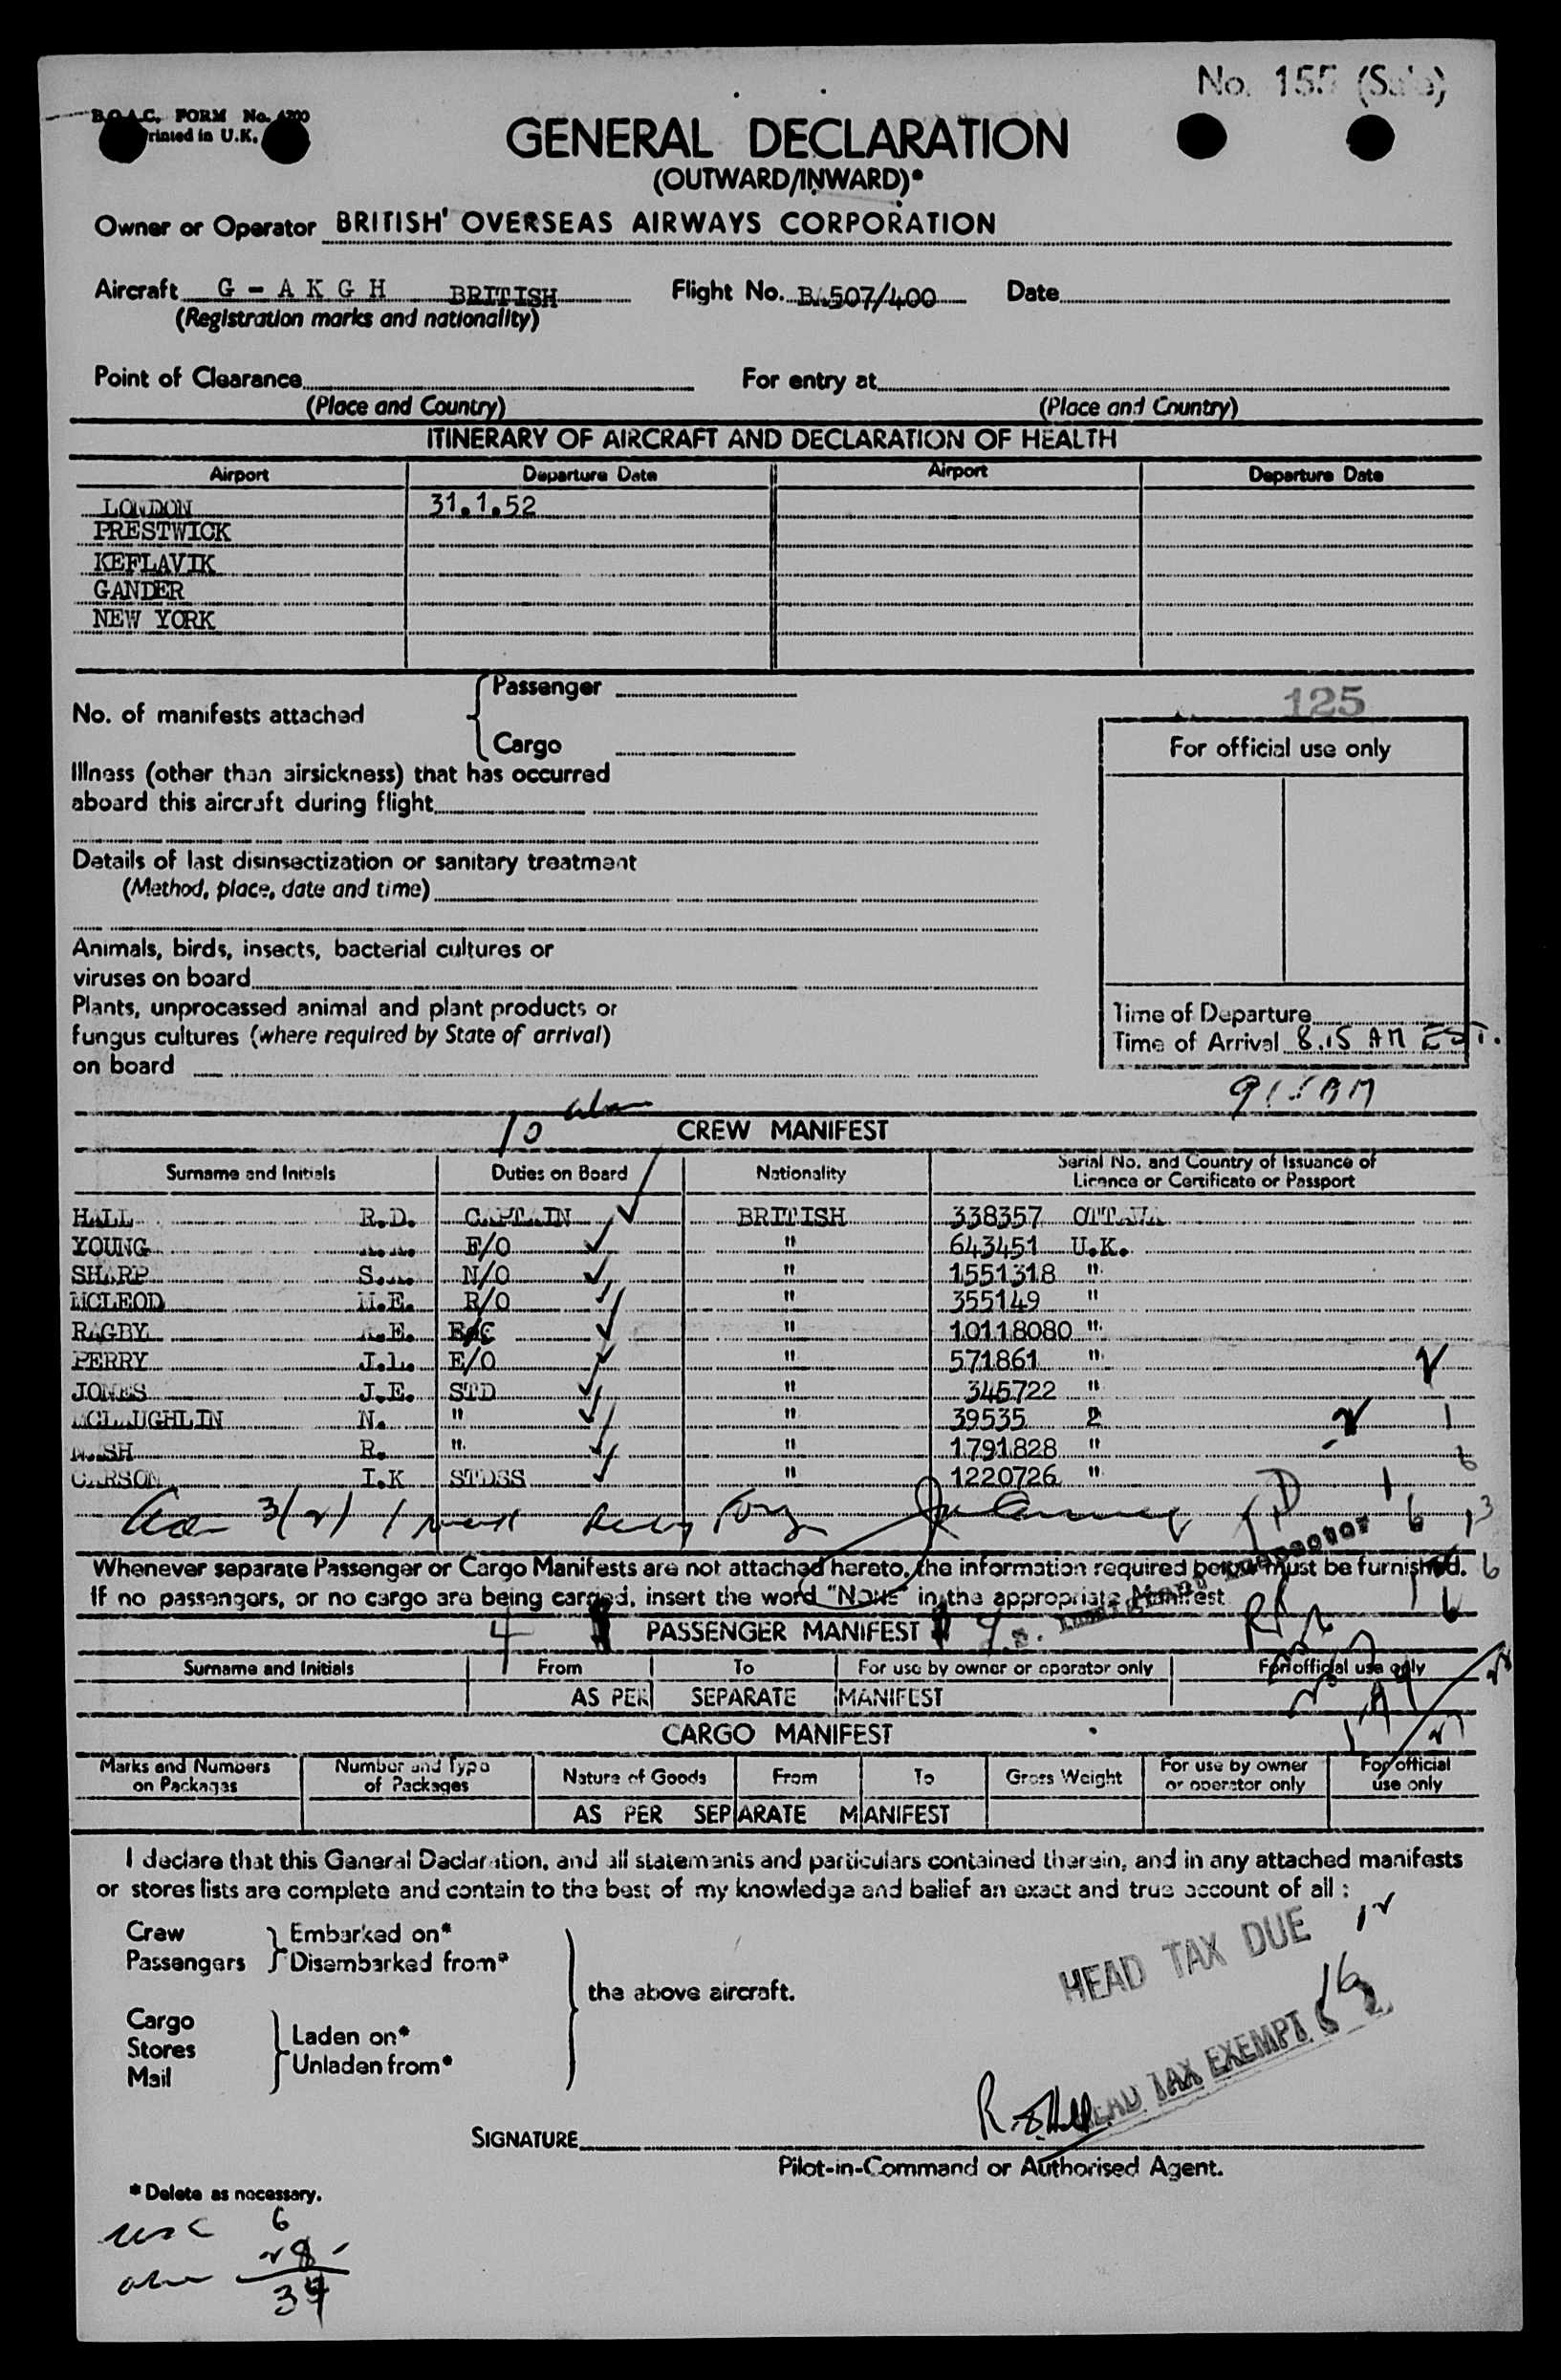 No. 155 (Sale)
B.O.A.C. FORM No.
Printed in U.K.
GENERAL DECLARATION
(OUTWARD/INWARD)*
Owner or Operator BRITISH OVERSEAS AIRWAYS CORPORATION
Aircraft G - A K G H BRITISH Flight No. BA507/400 Date
(Registration marks and nationality)
Point of Clearance For entry at
(Place and Country) (Place and Country)
ITINERARY OF AIRCRAFT AND DECLARATION OF HEALTH
Airport Departure Date Airport Departure Date
LONDON 31.1.52
PRESTWICK
KEFLAVIK
GANDER
NEW YORK
No. of manifests attached { Passenger
Cargo
125
For official use only
Illness (other than airsickness) that has occurred
aboard this aircraft during flight
Details of last disinsectization or sanitary treatment
(Method, place, date and time)
Animals, birds, insects, bacterial cultures or
viruses on board
Plants, unprocessed animal and plant products or
fungus cultures (where required by State of arrival)
on board
Time of Departure
Time of Arrival 8.15 AM EST.
915AM
10
CREW MANIFEST
Surname and Initials Duties on Board Nationality Serial No. and Country of Issuance of
Licence or Certificate or Passport
HALL R.D. CAPTAIN BRITISH 338357 OTTAWA
YOUNG F/O " 643451 U.K.
SHARP N/O " 1551318 "
MCLEOD M.E. R/O " 355149 "
RAGBY A.E. " 10118080 "
PERRY J.L. E/O " 571861 "
JONES J.E. STD " 345722 "
MCLAUGHLIN N. " " 39535 2
NASH R. " " 1791828 "
CARSON I.K STDSS " 1220726 "
Whenever separate Passenger or Cargo Manifests are not attached hereto, the information required below must be furnished.
If no passengers, or no cargo are being carried, insert the word "NONE" in the appropriate Manifest
PASSENGER MANIFEST
Surname and Initials From To For use by owner or operator only For official use only
AS PER SEPARATE MANIFEST
CARGO MANIFEST
Marks and Numbers on Packages Number and Type of Packages Nature of Goods From To Gross Weight For use by owner or operator only For official use only
AS PER SEPARATE MANIFEST
I declare that this General Declaration, and all statements and particulars contained therein, and in any attached manifests
or stores lists are complete and contain to the best of my knowledge and belief an exact and true account of all :
Crew } Embarked on*
Passengers } Disembarked from*
the above aircraft.
Cargo
Stores } Laden on*
Mail } Unladen from*
HEAD TAX DUE
HEAD TAX EXEMPT
SIGNATURE
Pilot-in-Command or Authorised Agent.
* Delete as necessary.
6
28
34